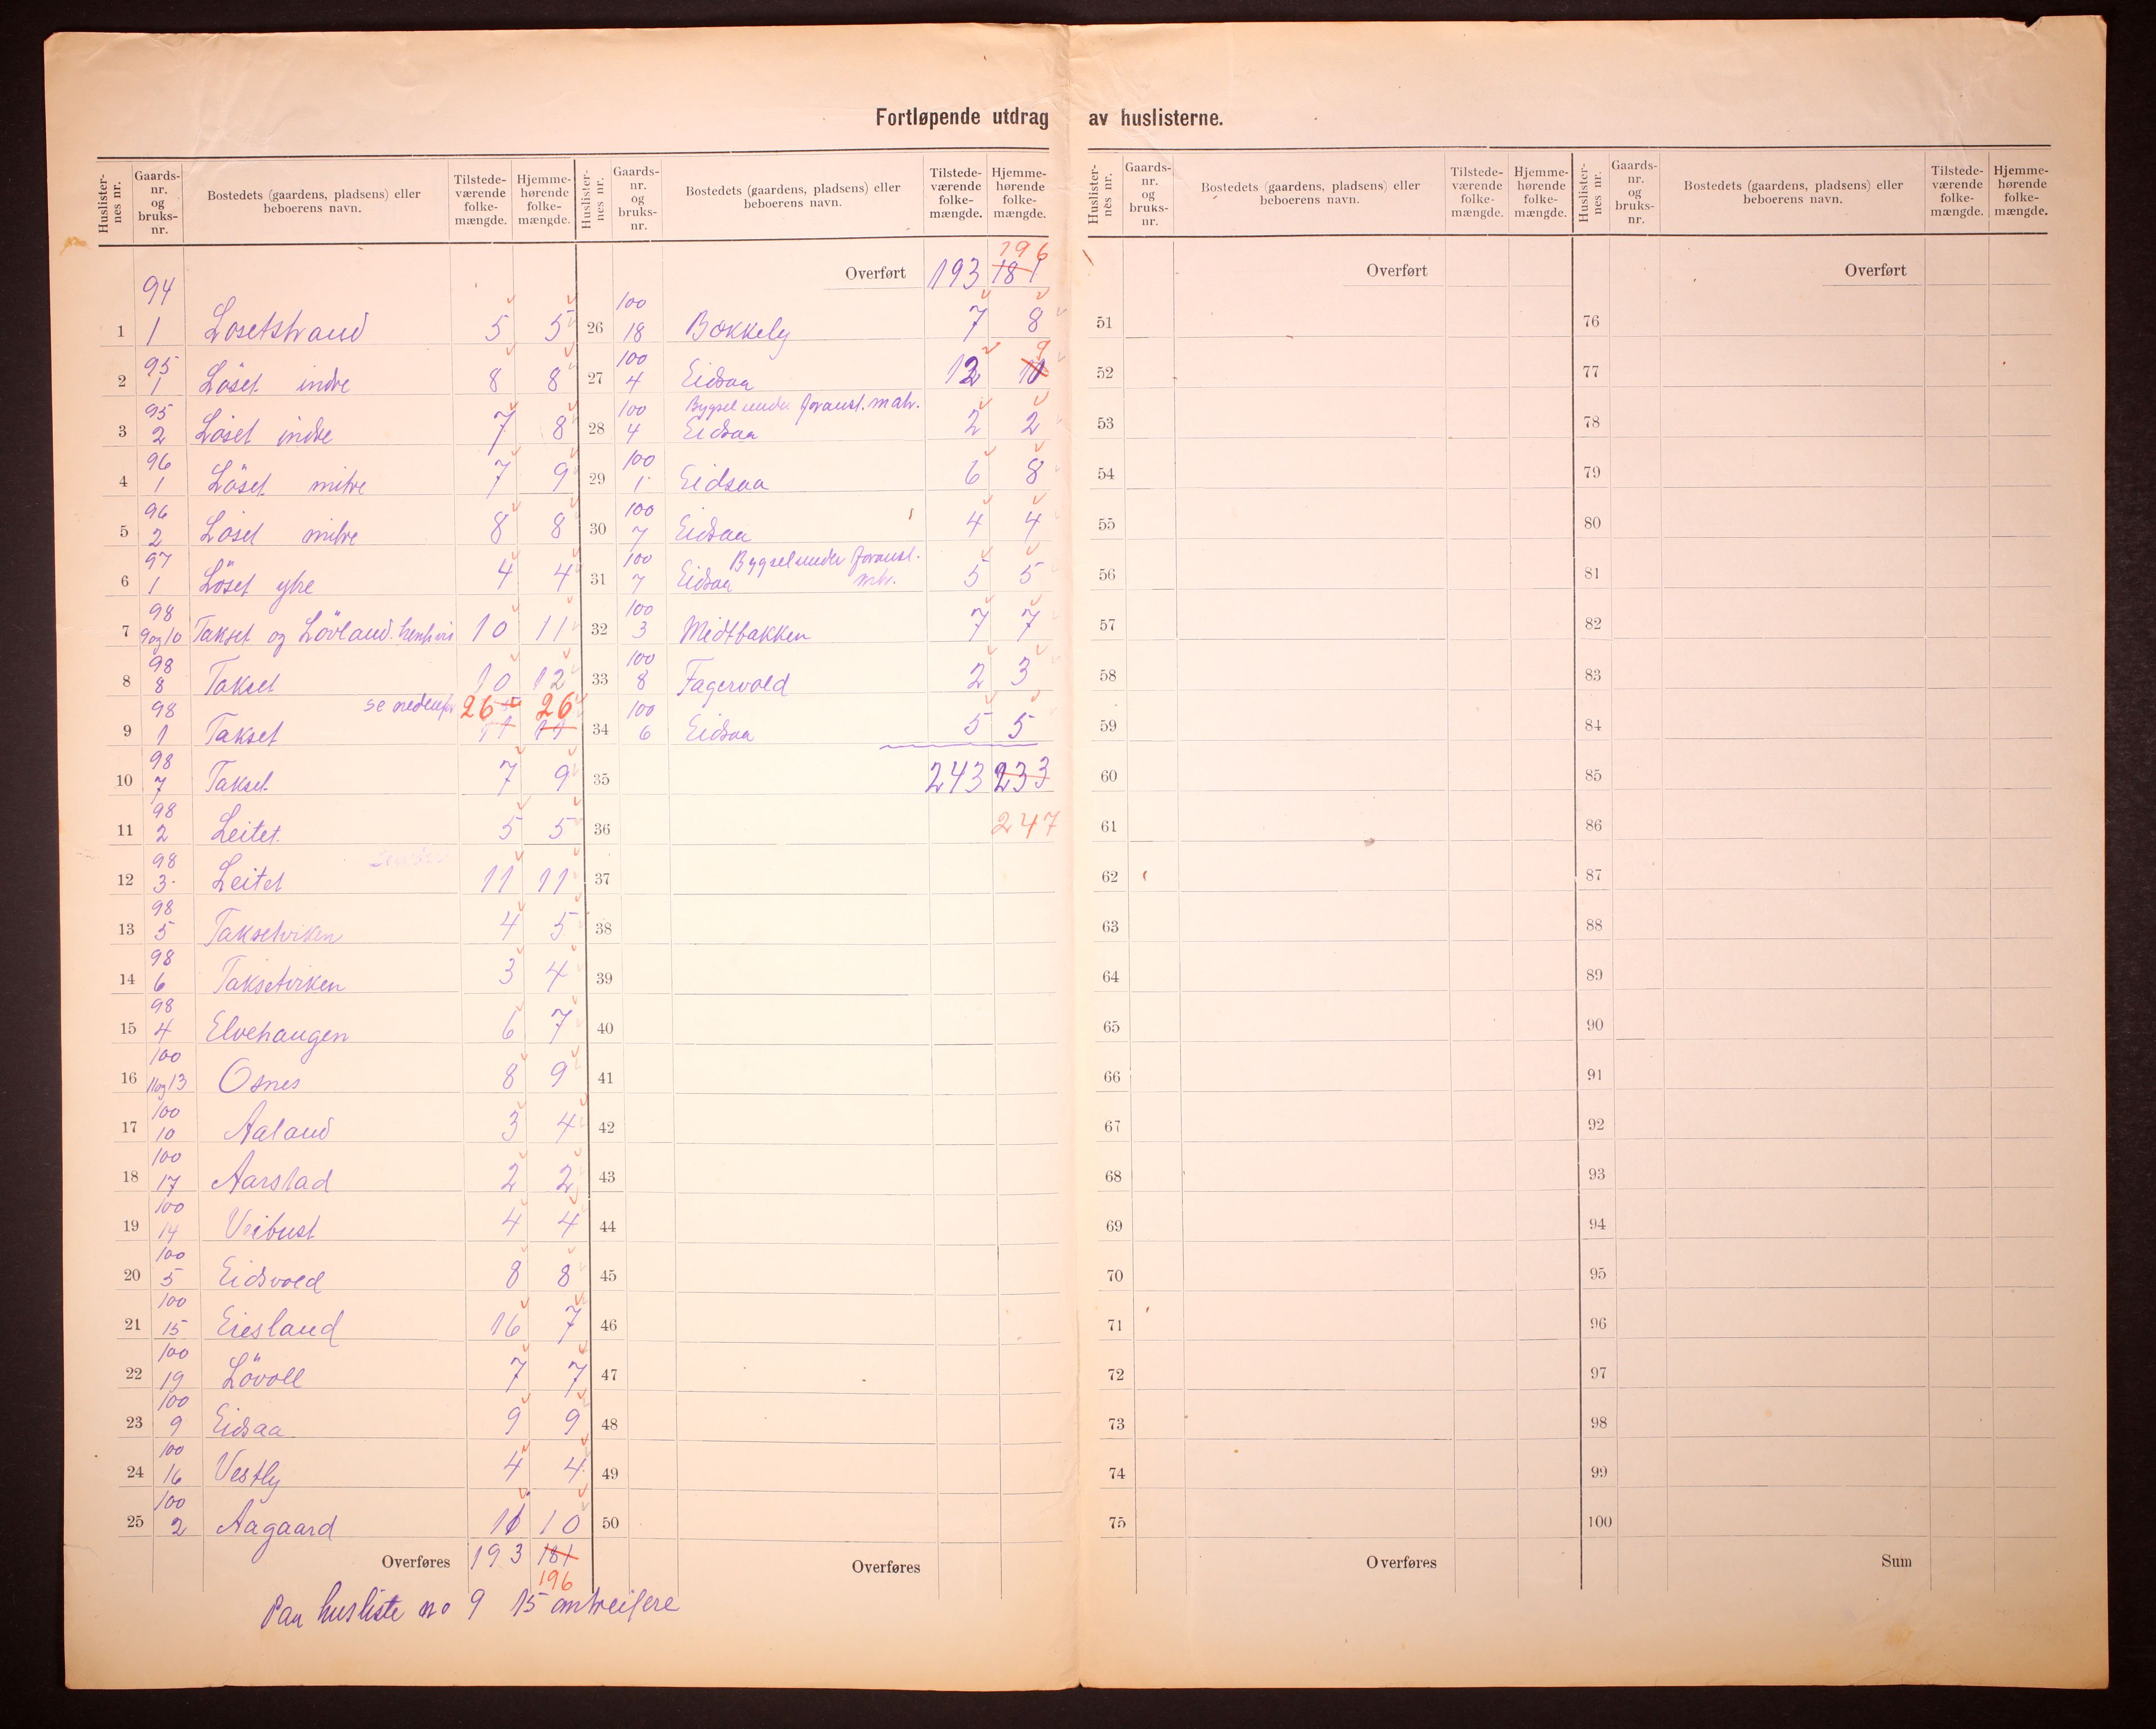 Fortløpende utdrag av huslisterne.
Huslister-nes nr. Gaards-nr. og bruks-nr. Bostedets (gaardens, pladsens) eller beboerens navn. Tilstede-værende folke-mængde. Hjemme-hørende folke-mængde.
1 94 1 Losetstrand 5 5
2 95 1 Löset indre 8 8
3 95 2 Löset indre 7 8
4 96 1 Löset mitre 7 9
5 96 2 Löset mitre 8 8
6 97 1 Löset ytre 4 4
7 98 9 og 10 Takset og Lövland 10 11
8 98 8 Takset 10 12
se nedenfor 26 26
9 98 1 Takset 11 11
10 98 7 Takset 7 9
11 98 2 Leitet 5 5
12 98 3 Leitet 11 11
13 98 5 Taksetviken 4 5
14 98 6 Taksetviken 3 4
15 98 4 Elvehaugen 6 7
16 100 11 og 13 Osnes 8 9
17 100 10 Aaland 3 4
18 100 17 Aarstad 2 2
19 100 14 Veibust 4 4
20 100 5 Eidsvold 8 8
21 100 15 Eiesland 16 7
22 100 19 Lövoll 7 7
23 100 9 Eidsaa 9 9
24 100 16 Vestly 4 4
25 100 2 Aagaard 11 10
Overføres 193 181
196
Paa husliste no 9 15 omtreifere
Huslister-nes nr. Gaards-nr. og bruks-nr. Bostedets (gaardens, pladsens) eller beboerens navn. Tilstede-værende folke-mængde. Hjemme-hørende folke-mængde.
196
Overført 193 181
26 100 18 Bækkely 7 8
27 100 4 Eidsaa 12 10 9
Bygsel under foranst. matr.
28 100 4 Eidsaa 2 2
29 100 1 Eidsaa 6 8
30 100 7 Eidsaa 4 4
Bygsel under foranst. mtr.
31 100 7 Eidsaa 5 5
32 100 3 Midtbakken 7 7
33 100 8 Fagervold 2 3
34 100 6 Eidsaa 5 5
35 243 233
36 247
37
38
39
40
41
42
43
44
45
46
47
48
49
50
Overføres
Huslister-nes nr. Gaards-nr. og bruks-nr. Bostedets (gaardens, pladsens) eller beboerens navn. Tilstede-værende folke-mængde. Hjemme-hørende folke-mængde.
Overført
51
52
53
54
55
56
57
58
59
60
61
62
63
64
65
66
67
68
69
70
71
72
73
74
75
Overføres
Huslister-nes nr. Gaards-nr. og bruks-nr. Bostedets (gaardens, pladsens) eller beboerens navn. Tilstede-værende folke-mængde. Hjemme-hørende folke-mængde.
Overført
76
77
78
79
80
81
82
83
84
85
86
87
88
89
90
91
92
93
94
95
96
97
98
99
100
Sum